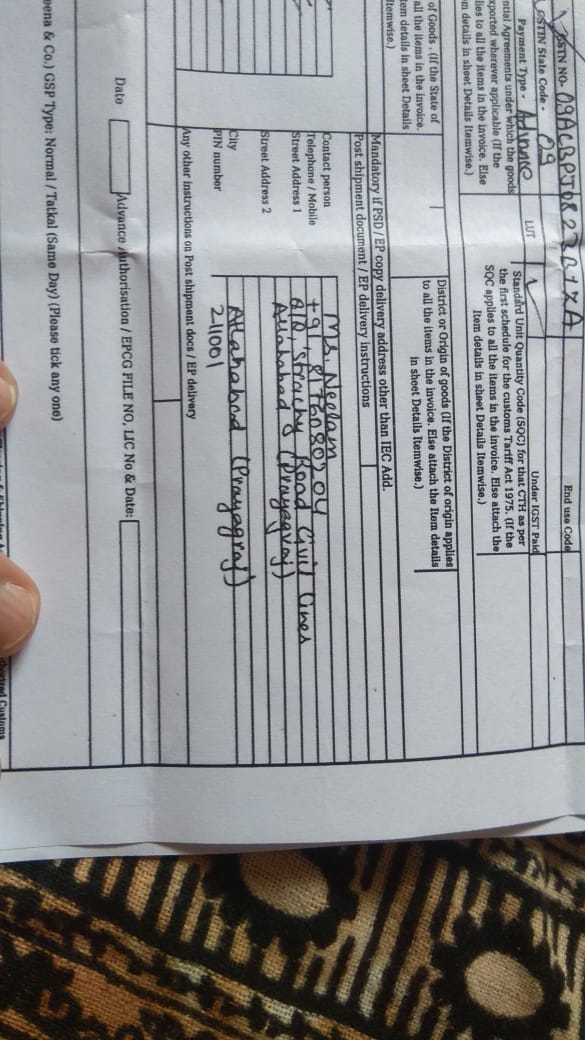 GSTN NO- End use Code
GSTIN State Code - 09
Payment Type - Advance LUT ✓ Under IGST Paid
ntial Agreements under which the goods
xported wherever applicable (If the
lies to all the items in the invoice. Else
m details in sheet Details Itemwise.)
Standard Unit Quantity Code (SQC) for that CTH as per
the first schedule for the customs Tariff Act 1975. (If the
SQC applies to all the items in the invoice. Else attach the
Item details in sheet Details Itemwise.)
of Goods . (If the State of
all the items in the invoice.
tem details in sheet Details
Itemwise.)
District or Origin of goods (If the District of origin applies
to all the items in the invoice. Else attach the Item details
in sheet Details Itemwise.)
Mandatory if PSD / EP copy delivery address other than IEC Add.
Post shipment document / EP delivery instructions
Contact person Ms. Neelam
Telephone / Mobile +91, 8176080204
Street Address 1 Strachy Road Civil Lines
Allahabad (Prayagraj)
Street Address 2
City Allahabad (Prayagraj)
PIN number 211001
Any other instructions on Post shipment docs / EP delivery
Date Advance Authorisation / EPCG FILE NO, LIC No & Date:
eena & Co.) GSP Type: Normal / Tatkal (Same Day) (Please tick any one)
Customs